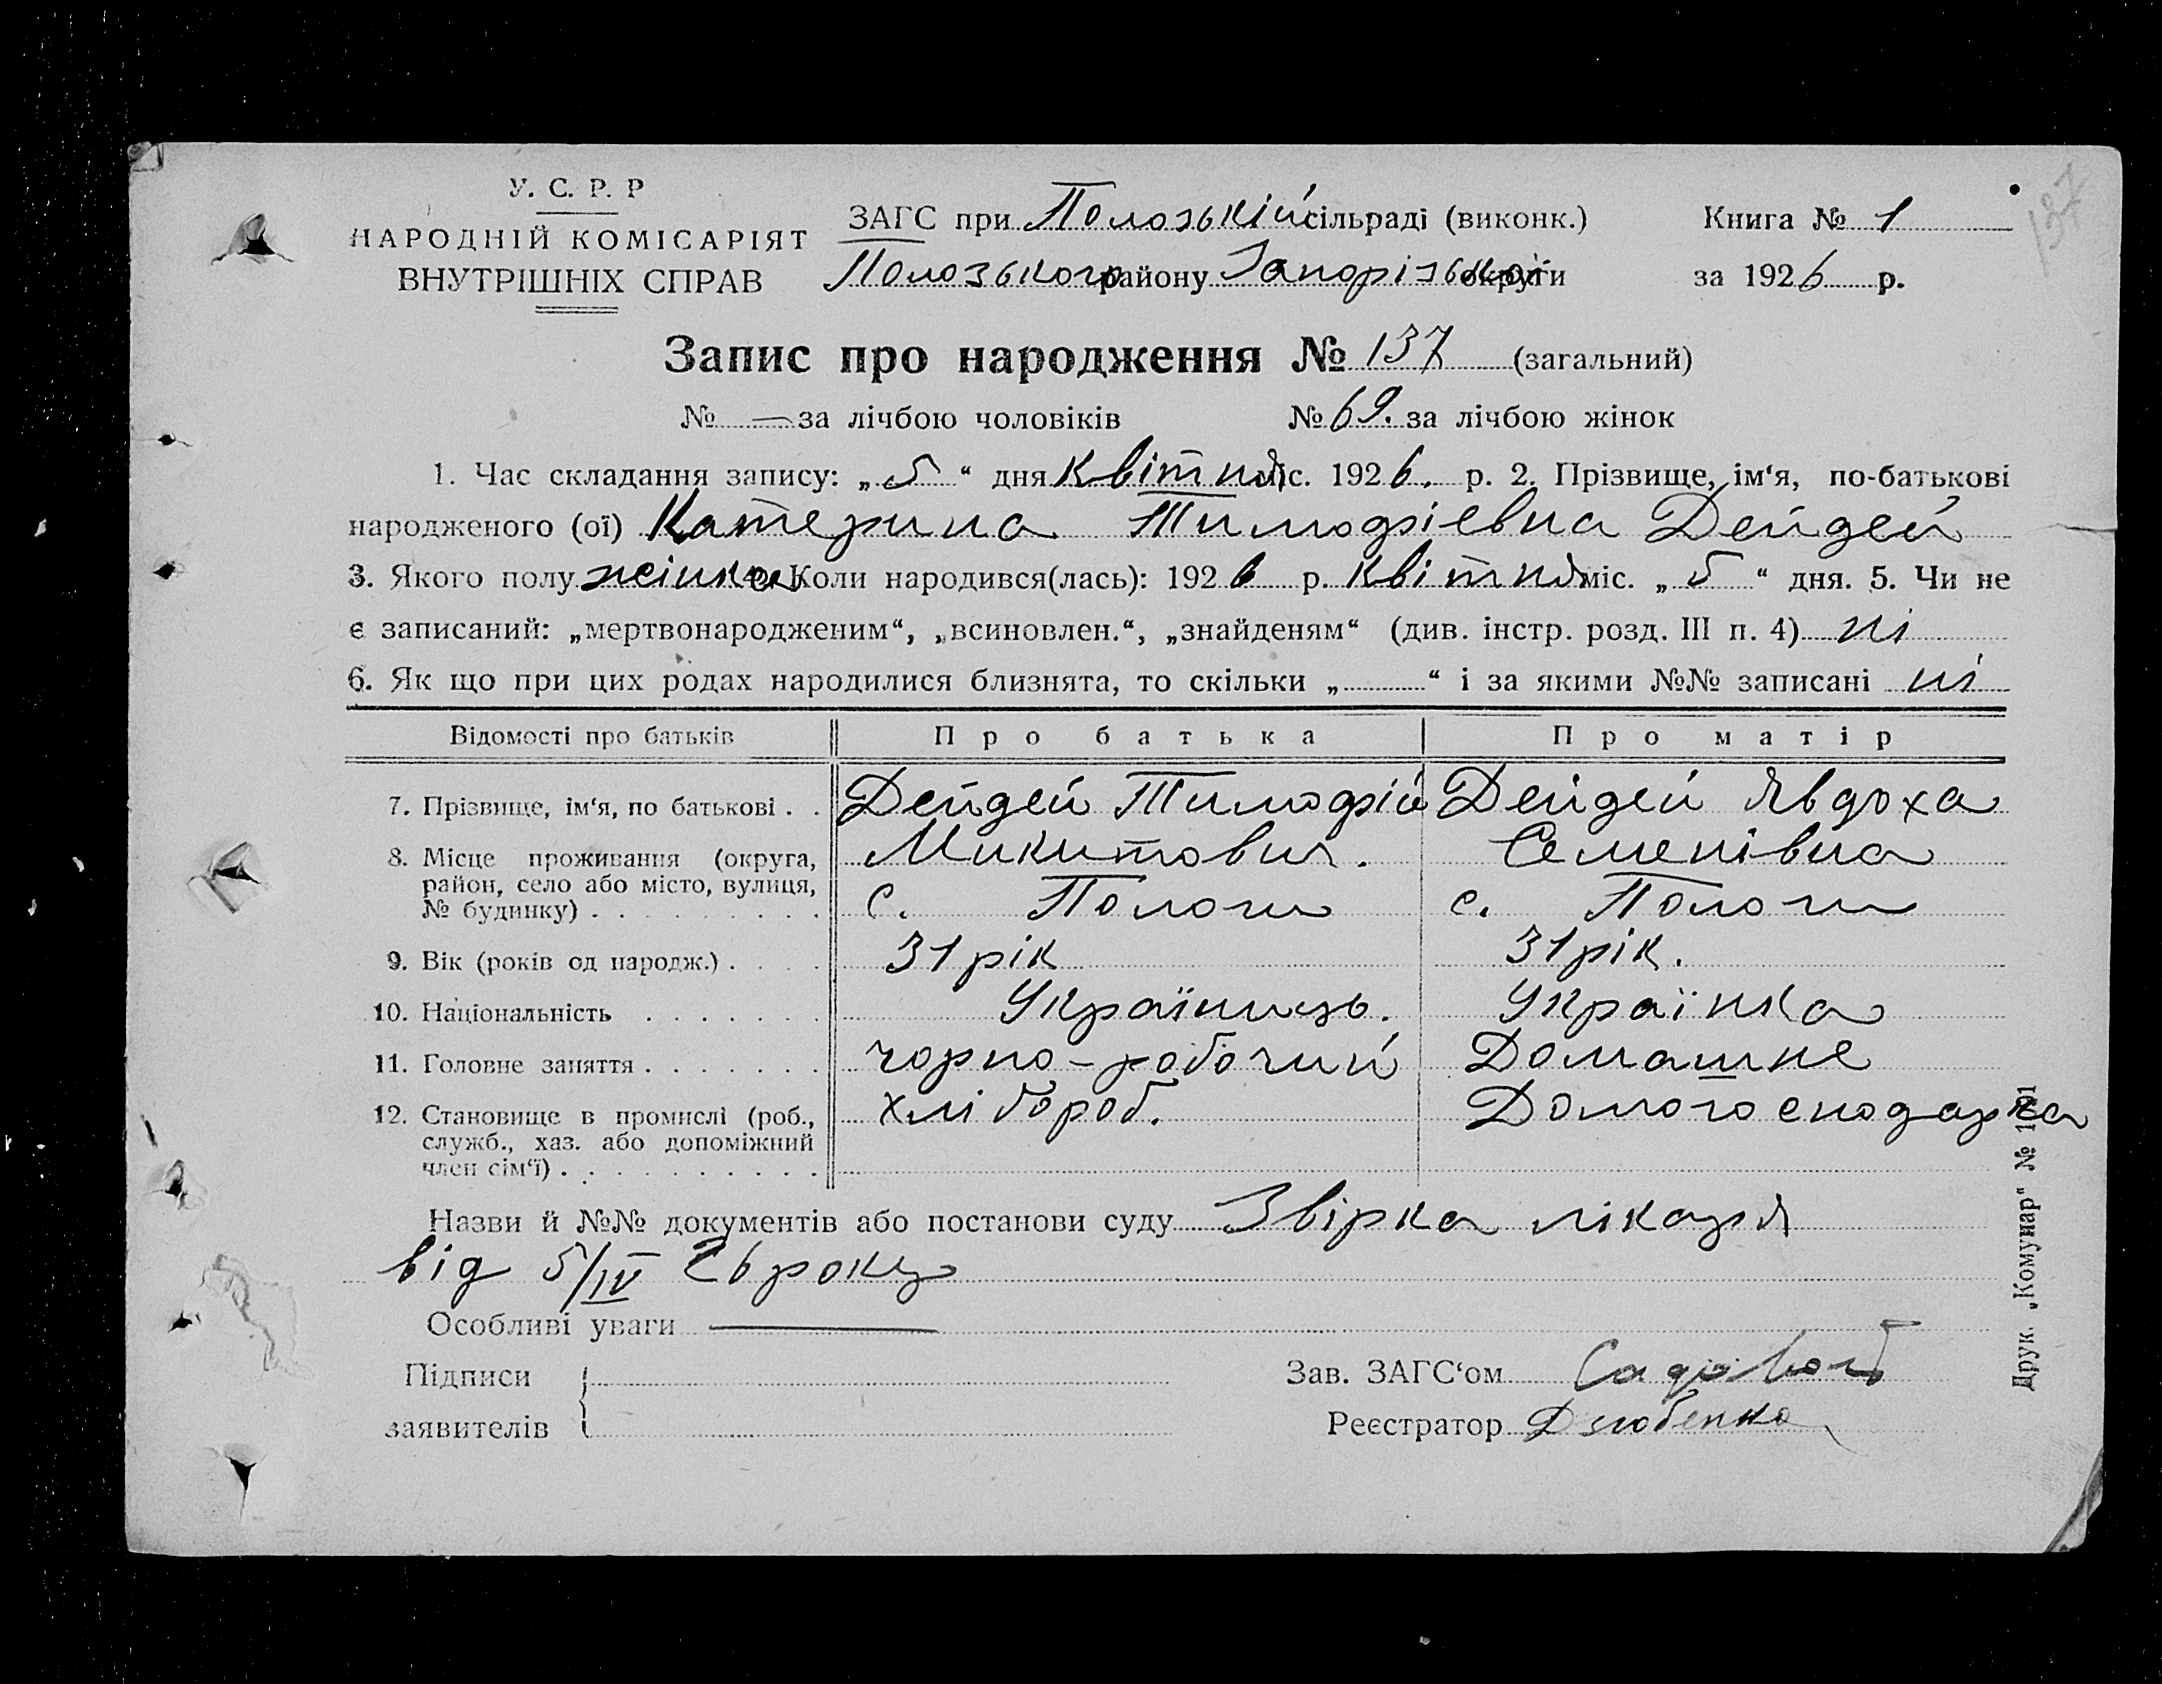 137
У. С. Р. Р
НАРОДНІЙ КОМІСАРІЯТ
ВНУТРІШНІХ СПРАВ
ЗАГС при Полозькій сільраді (виконк.)
Полозького району Запорізької округи
Книга № 1
за 1926 р.
Запис про народження № 137 (загальний)
№ — за лічбою чоловіків № 69. за лічбою жінок
1. Час складання запису: „5“ дня квітня міс. 1926. р. 2. Прізвище, ім‘я, по-батькові
народженого (ої) Катерина Тимофіевна Дейдей
3. Якого полу жіноч Коли народився(лась): 1926 р. квітня міс. „5“ дня. 5. Чи не
є записаний: „мертвонародженим“, „всиновлен.“, „знайденям“ (див. інстр. розд. III п. 4) ні
6. Як що при цих родах народилися близнята, то скільки „ “ і за якими №№ записані ні
Відомості про батьків Про батька Про матір
7. Прізвище, ім‘я, по батькові . . Дейдей Тимофій Дейдей Явдоха
Микитович. Семенівна
8. Місце проживання (округа,
район, село або місто, вулиця,
№ будинку) . . . . . . . . . с. Пологи с. Пологи
9. Вік (років од народж.) . . . . 31 рік 31 рік.
10. Національність . . . . . . . Українець. Українка
11. Головне заняття . . . . . . . чорно-робочий Домашнє
12. Становище в промислі (роб.,
служб., хаз. або допоміжний
член сім‘ї) . . . . . . . . . . хлібороб. Домогосподарка
Назви й №№ документів або постанови суду Звірка лікаря
від 5/IV 26 року
Особливі уваги —
Підписи
заявителів
Зав. ЗАГС‘ом
Реєстратор Дзюбенко
Друк. „Комунар“ №